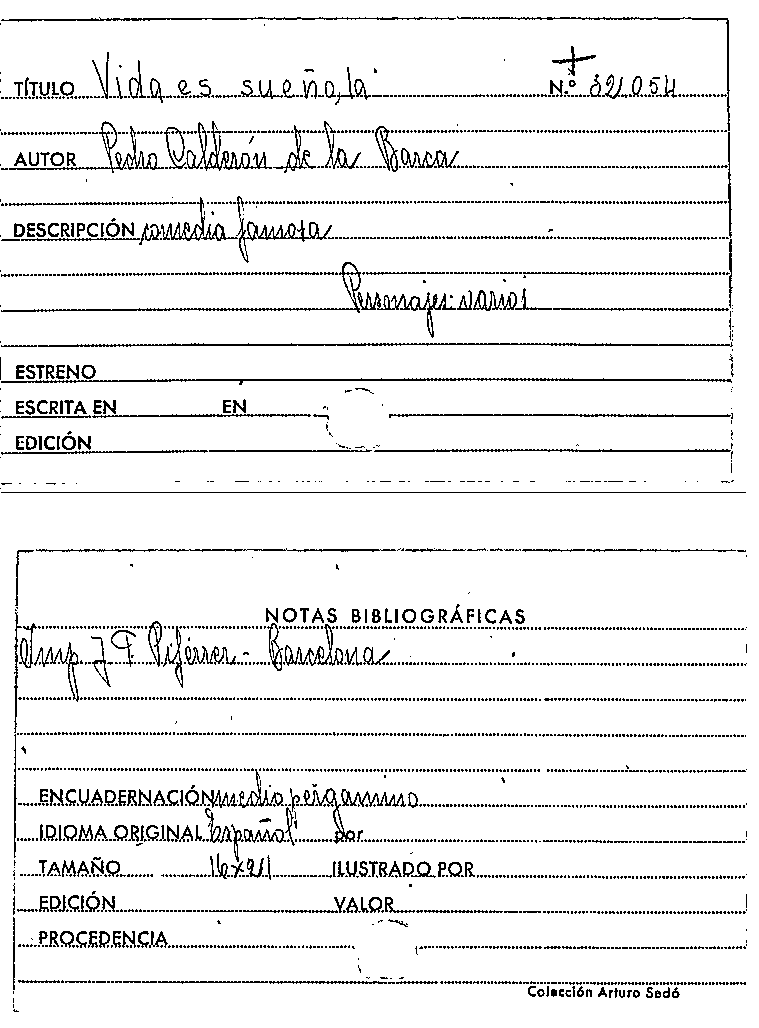 TÍTULO Vida es sueño, la N.º 32054
AUTOR Pedro Calderón de la Barca
DESCRIPCIÓN comedia famosa
Personajes: varios
ESTRENO
ESCRITA EN EN
EDICIÓN
NOTAS BIBLIOGRÁFICAS
Imp. J. P. Piferrer - Barcelona
ENCUADERNACIÓN medio pergamino
IDIOMA ORIGINAL Español por
TAMAÑO 16x21 ILUSTRADO POR
EDICIÓN VALOR
PROCEDENCIA
Colección Arturo Sedó